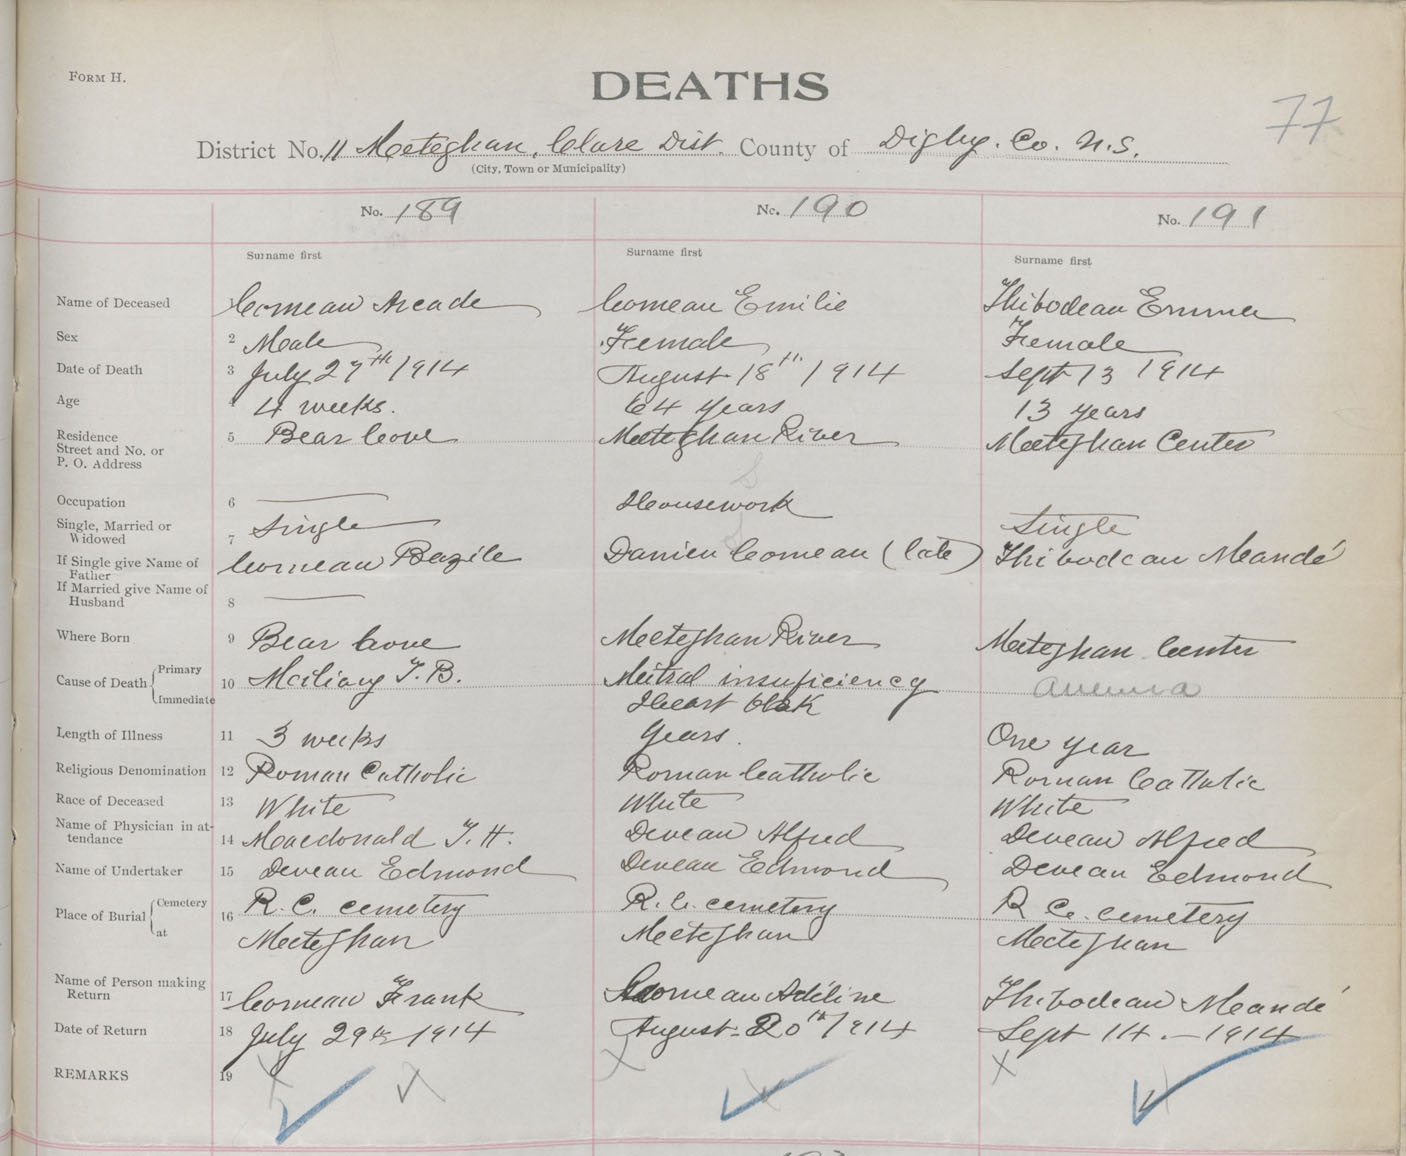 FORM H.
DEATHS
77
District No. 11 Meteghan, Clare Dist. County of Digby. Co. N.S.
(City, Town or Municipality)
No. 189 No. 190 No. 191
Surname first Surname first Surname first
Name of Deceased 1 Comeau Arcade Comeau Emilie Thibodeau Emma
Sex 2 Male Female Female
Date of Death 3 July 27th 1914 August 18th 1914 Sept 13 1914
Age 4 4 weeks. 64 years 13 years
Residence Street and No. or P. O. Address 5 Bear Cove Meteghan River Meteghan Center
Occupation 6 Housework
Single, Married or Widowed 7 Single Single
If Single give Name of Father Comeau Bazile Damien Comeau (late) Thibodeau Mandé
If Married give Name of Husband 8
Where Born 9 Bear Cove Meteghan River Meteghan Center
Cause of Death Primary Immediate 10 Miliary T.B. Mitral insuficiency anemia
Heart blok
Length of Illness 11 3 weeks Years. One year
Religious Denomination 12 Roman Catholic Roman Catholic Roman Catholic
Race of Deceased 13 White White White
Name of Physician in attendance 14 Macdonald T. H. Deveau Alfred Deveau Alfred
Name of Undertaker 15 Deveau Edmond Deveau Edmond Deveau Edmond
Place of Burial Cemetery at 16 R. C. cemetery R. C. cemetery R C. cemetery
Meteghan Meteghan Meteghan
Name of Person making Return 17 Comeau Frank Comeau Adéline Thibodeau Mandé
Date of Return 18 July 29th 1914 August 20th 1914 Sept 14. - 1914
REMARKS 19